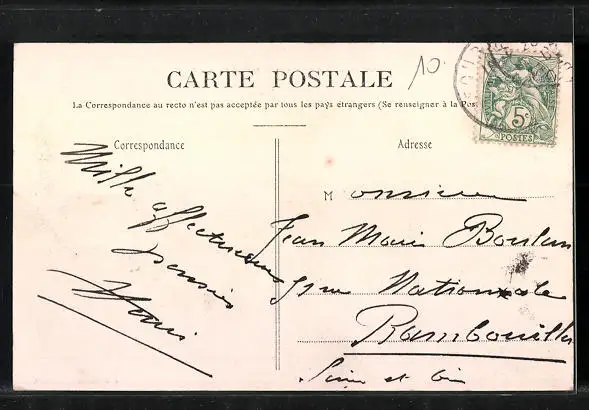 CARTE POSTALE
10.
La Correspondance au recto n'est pas acceptée par tous les pays étrangers (Se renseigner à la Pos
Correspondance
Mille
affectueuses
pensées
Adresse
Monsieur
Jean Marie Boulan
rue Nationale
Rambouillet
Seine et
5c
POSTES